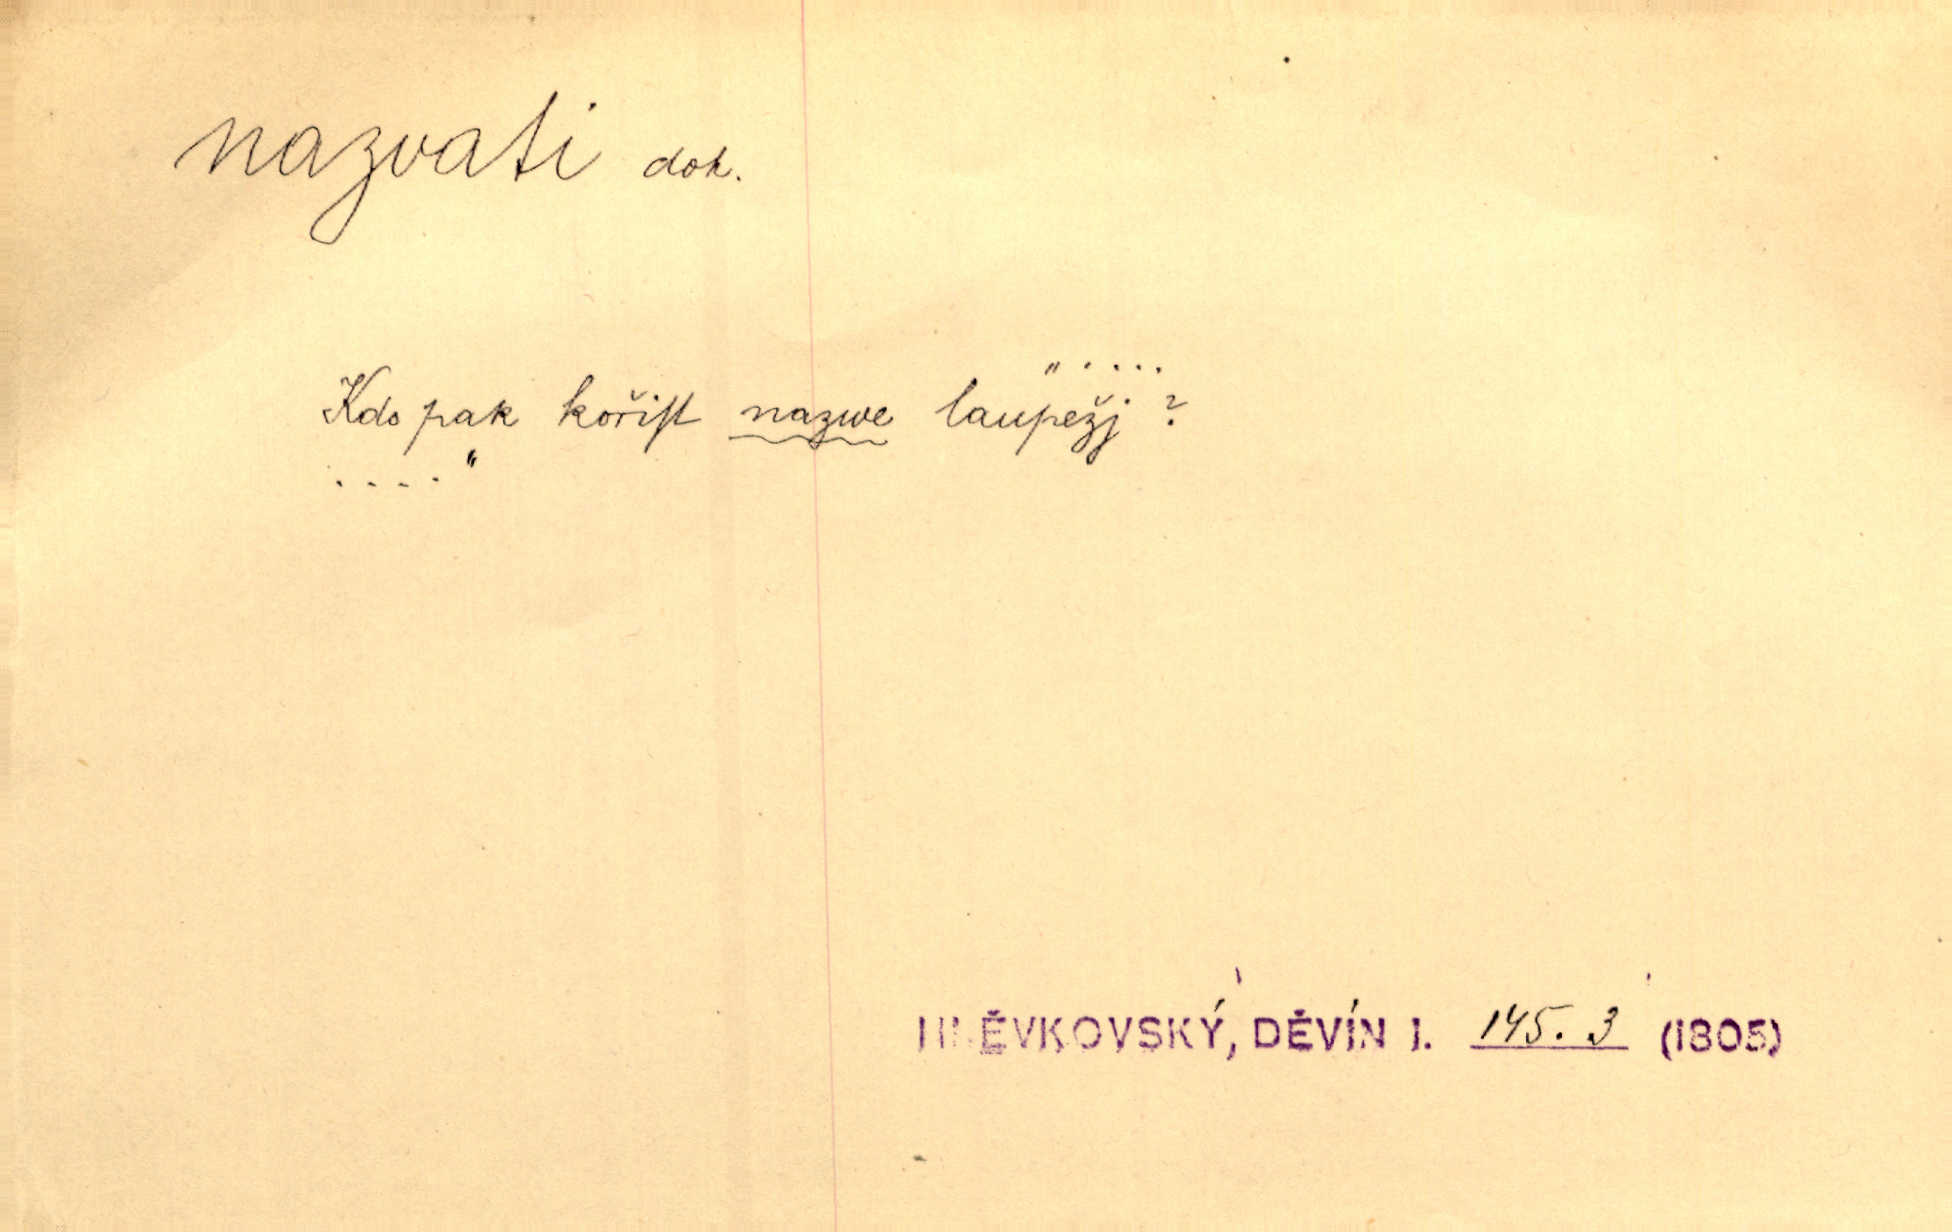 nazvati dok.
" . . . .
Kdo pak kořist nazwe laupežj ?
. . . . "
HNĚVKOVSKÝ, DĚVÍN I. 145. 3 (1805)